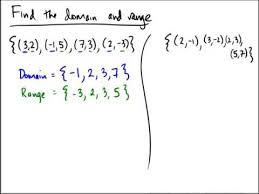 Find the domain and range
{(3,2), (-1,5), (7,3), (2,-3)}
Domain = {-1, 2, 3, 7}
Range = {-3, 2, 3, 5}
{(2,-1), (3,-2)(2,3),
(5,7)}